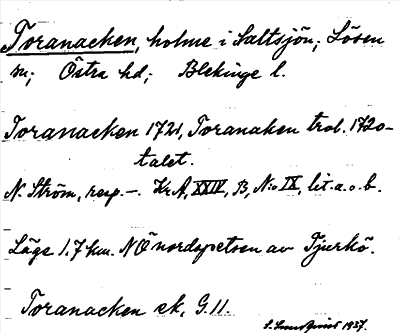 Toranacken, holme i Saltsjön; Lösen
sn; Östra hd; Blekinge l.
Toranacken 1721, Toranaken trol. 1720-
talet.
N. Ström, resp. -. Kr. A, XXIV, B, N:o IX, lit. a. o. b.
Läge 1.7 km. NÖ nordspetsen av Tjurkö.
Toranacken ek, G. 11.
1937.